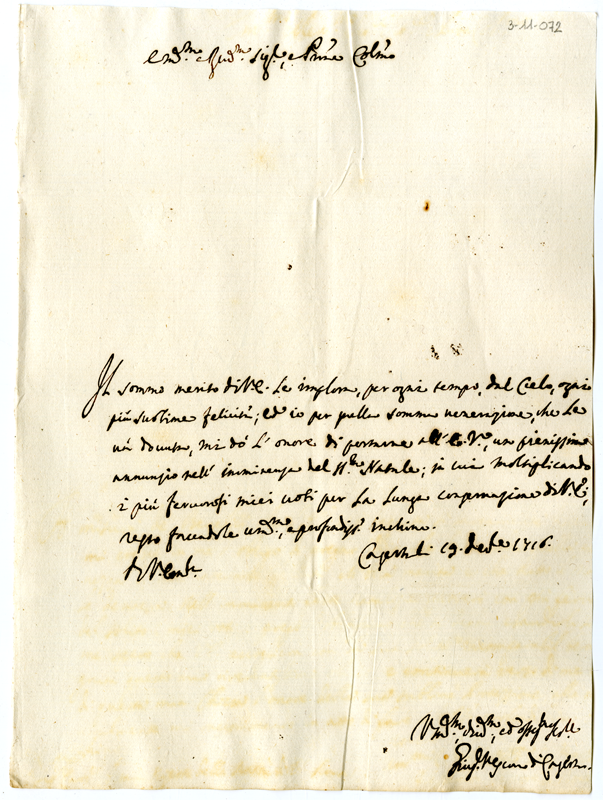 3-11-072
Em.mo e Rev.mo Sig.re, e P.rone Col.mo
Il sommo merito di V.E. Le implora, per ogni tempo, dal Cielo, ogni
più sublime felicità; ed io per quella somma venerazione, che Le
è dovuta, mi dò l'onore di portarne all'E.V., un pienissimo
annunzio nell'imminenza del SS.mo Natale; in cui moltiplicando
i più fervorosi miei voti per La Lunga conservazione di V.E.;
resto facendole um.ma, e profondiss.a inchino.
Di V. Em.za
li 19. Dec.e 1716.
Um.mo, Div.mo, ed oss.mo
Vescovo di